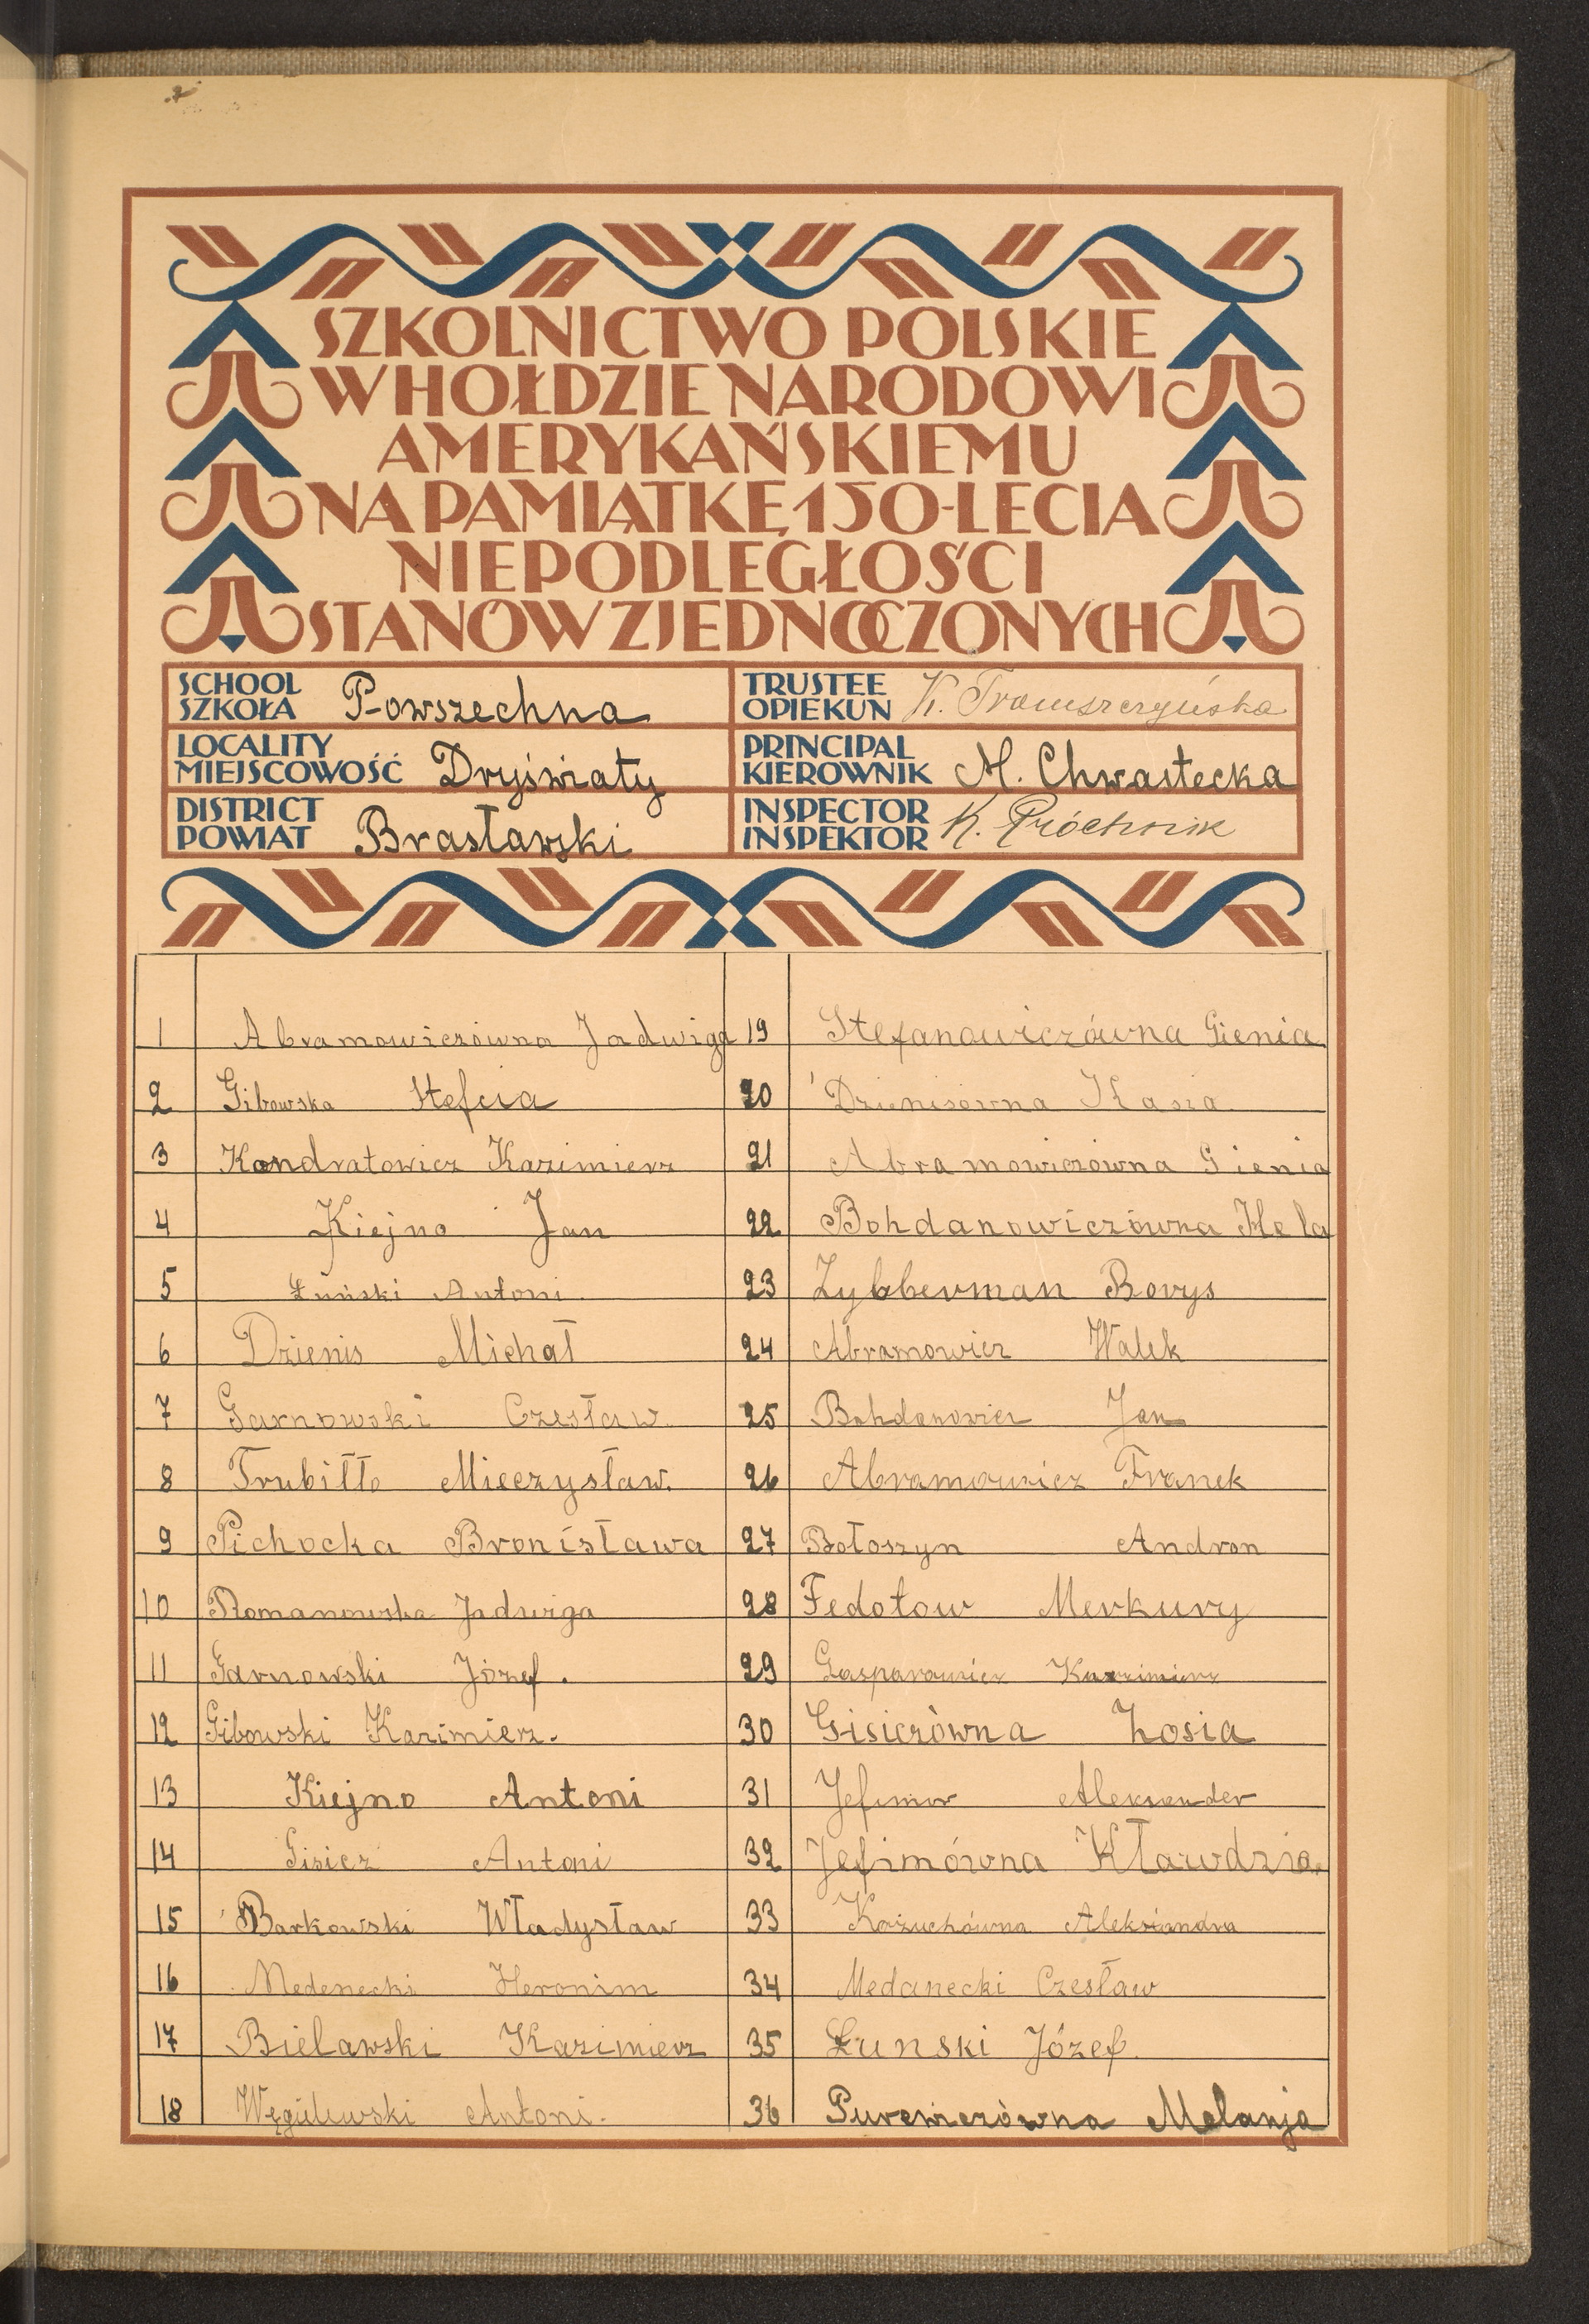 SZKOLNICTWO POLSKIE
W HOŁDZIE NARODOWI
AMERYKAŃSKIEMU
NA PAMIĄTKĘ 150-LECIA
NIEPODLEGŁOŚCI
STANÓW ZJEDNOCZONYCH
SCHOOL
SZKOŁA Powszechna
TRUSTEE
OPIEKUN K.
LOCALITY
MIEJSCOWOŚĆ Dryświaty
PRINCIPAL
KIEROWNIK M. Chwastecka
DISTRICT
POWIAT Brasławski
INSPECTOR
INSPEKTOR K. Próchnik
1 Abramowiczówna Jadwiga
2 Gibowska Stefcia
3 Kondratowicz Kazimierz
4 Kiejno Jan
5 Łuński Antoni
6 Dzienis Michał
7 Garnowski Czesław
8 Trubiłło Mieczysław.
9 Pichocka Bronisława
10 Romanowska Jadwiga
11 Garnowski Józef.
12 Gibowski Kazimierz.
13 Kiejno Antoni
14 Gisicz Antoni
15 Barkowski Władysław
16 Medenecki Heronim
17 Bielawski Kazimierz
18 Antoni.
19 Stefanowiczówna Gienia
20 Dzienisówna Kazia
21 Abramowiczówna Gienia
22 Bohdanowiczówna Hela
23 Zylberman Borys
24 Abramowicz Walek
25 Bohdanowicz Jan
26 Abramowicz Franek
27 Bołoszyn Andron
28 Fedotow Merkury
29 Gasparowicz Kazimierz
30 Gisiczówna Zosia
31 Jefimow Aleksander
32 Jefimówna Kławdzia.
33 Kożuchówna Aleksandra
34 Medanecki Czesław
35 Łunski Józef.
36 Purewiczówna Melanja